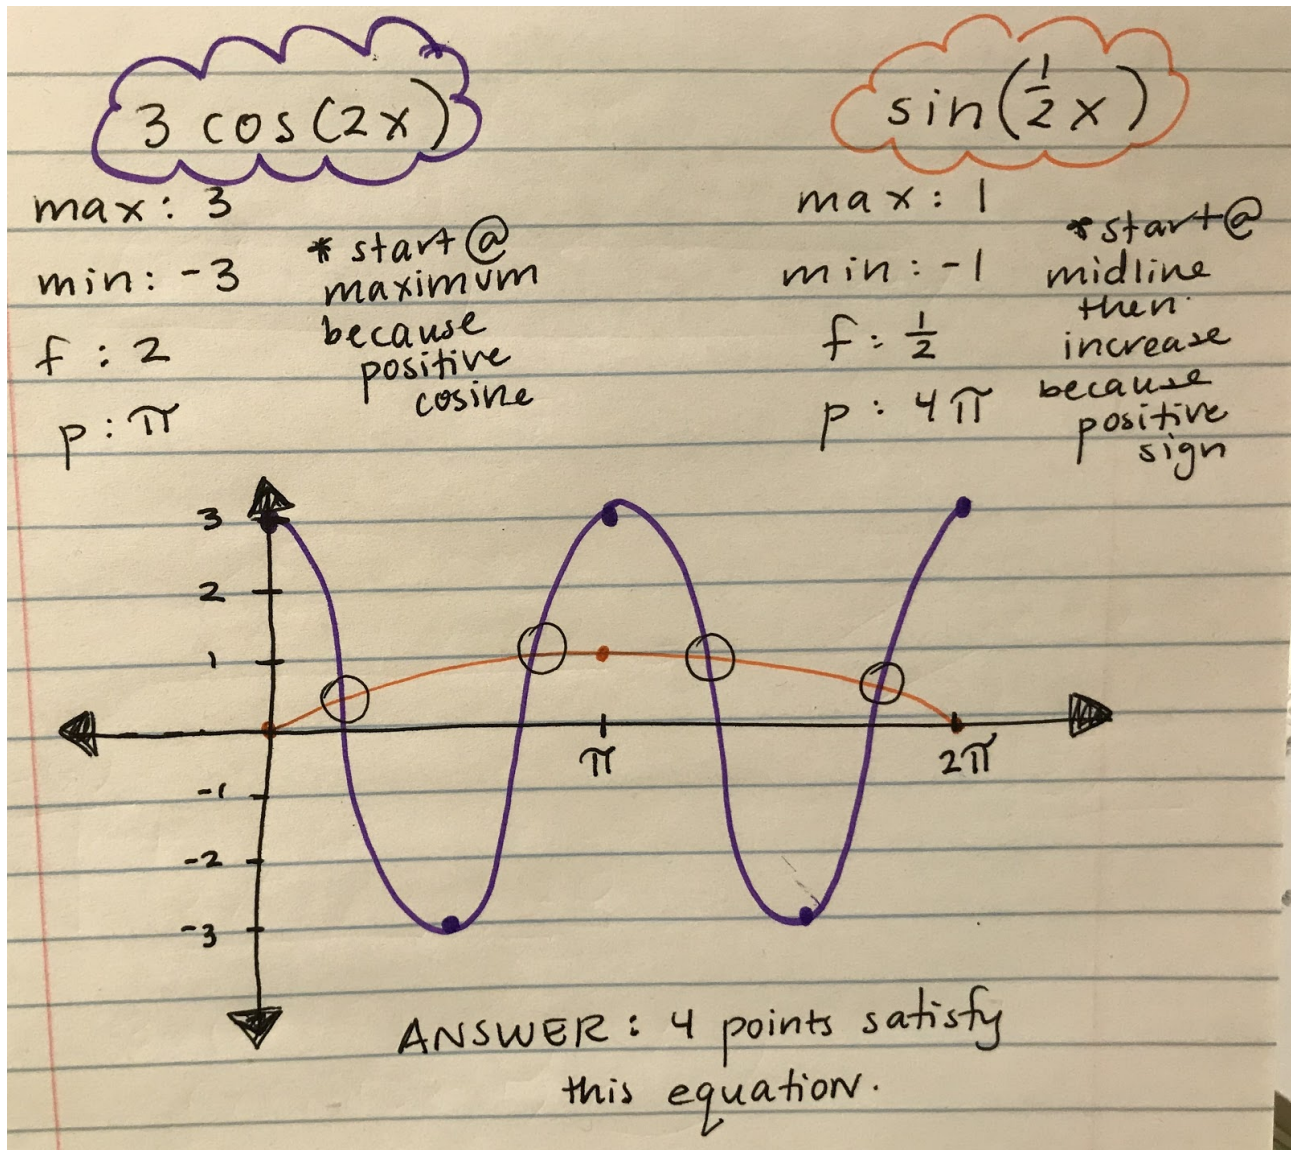 3 cos(2x)
max: 3
min: -3
f: 2
p: π
* start @
maximum
because
positive
cosine
sin(½x)
max: 1
min: -1
f: ½
p: 4π
* start @
midline
then
increase
because
positive
sign
3
2
1
-1
-2
-3
π
2π
ANSWER: 4 points satisfy
this equation.